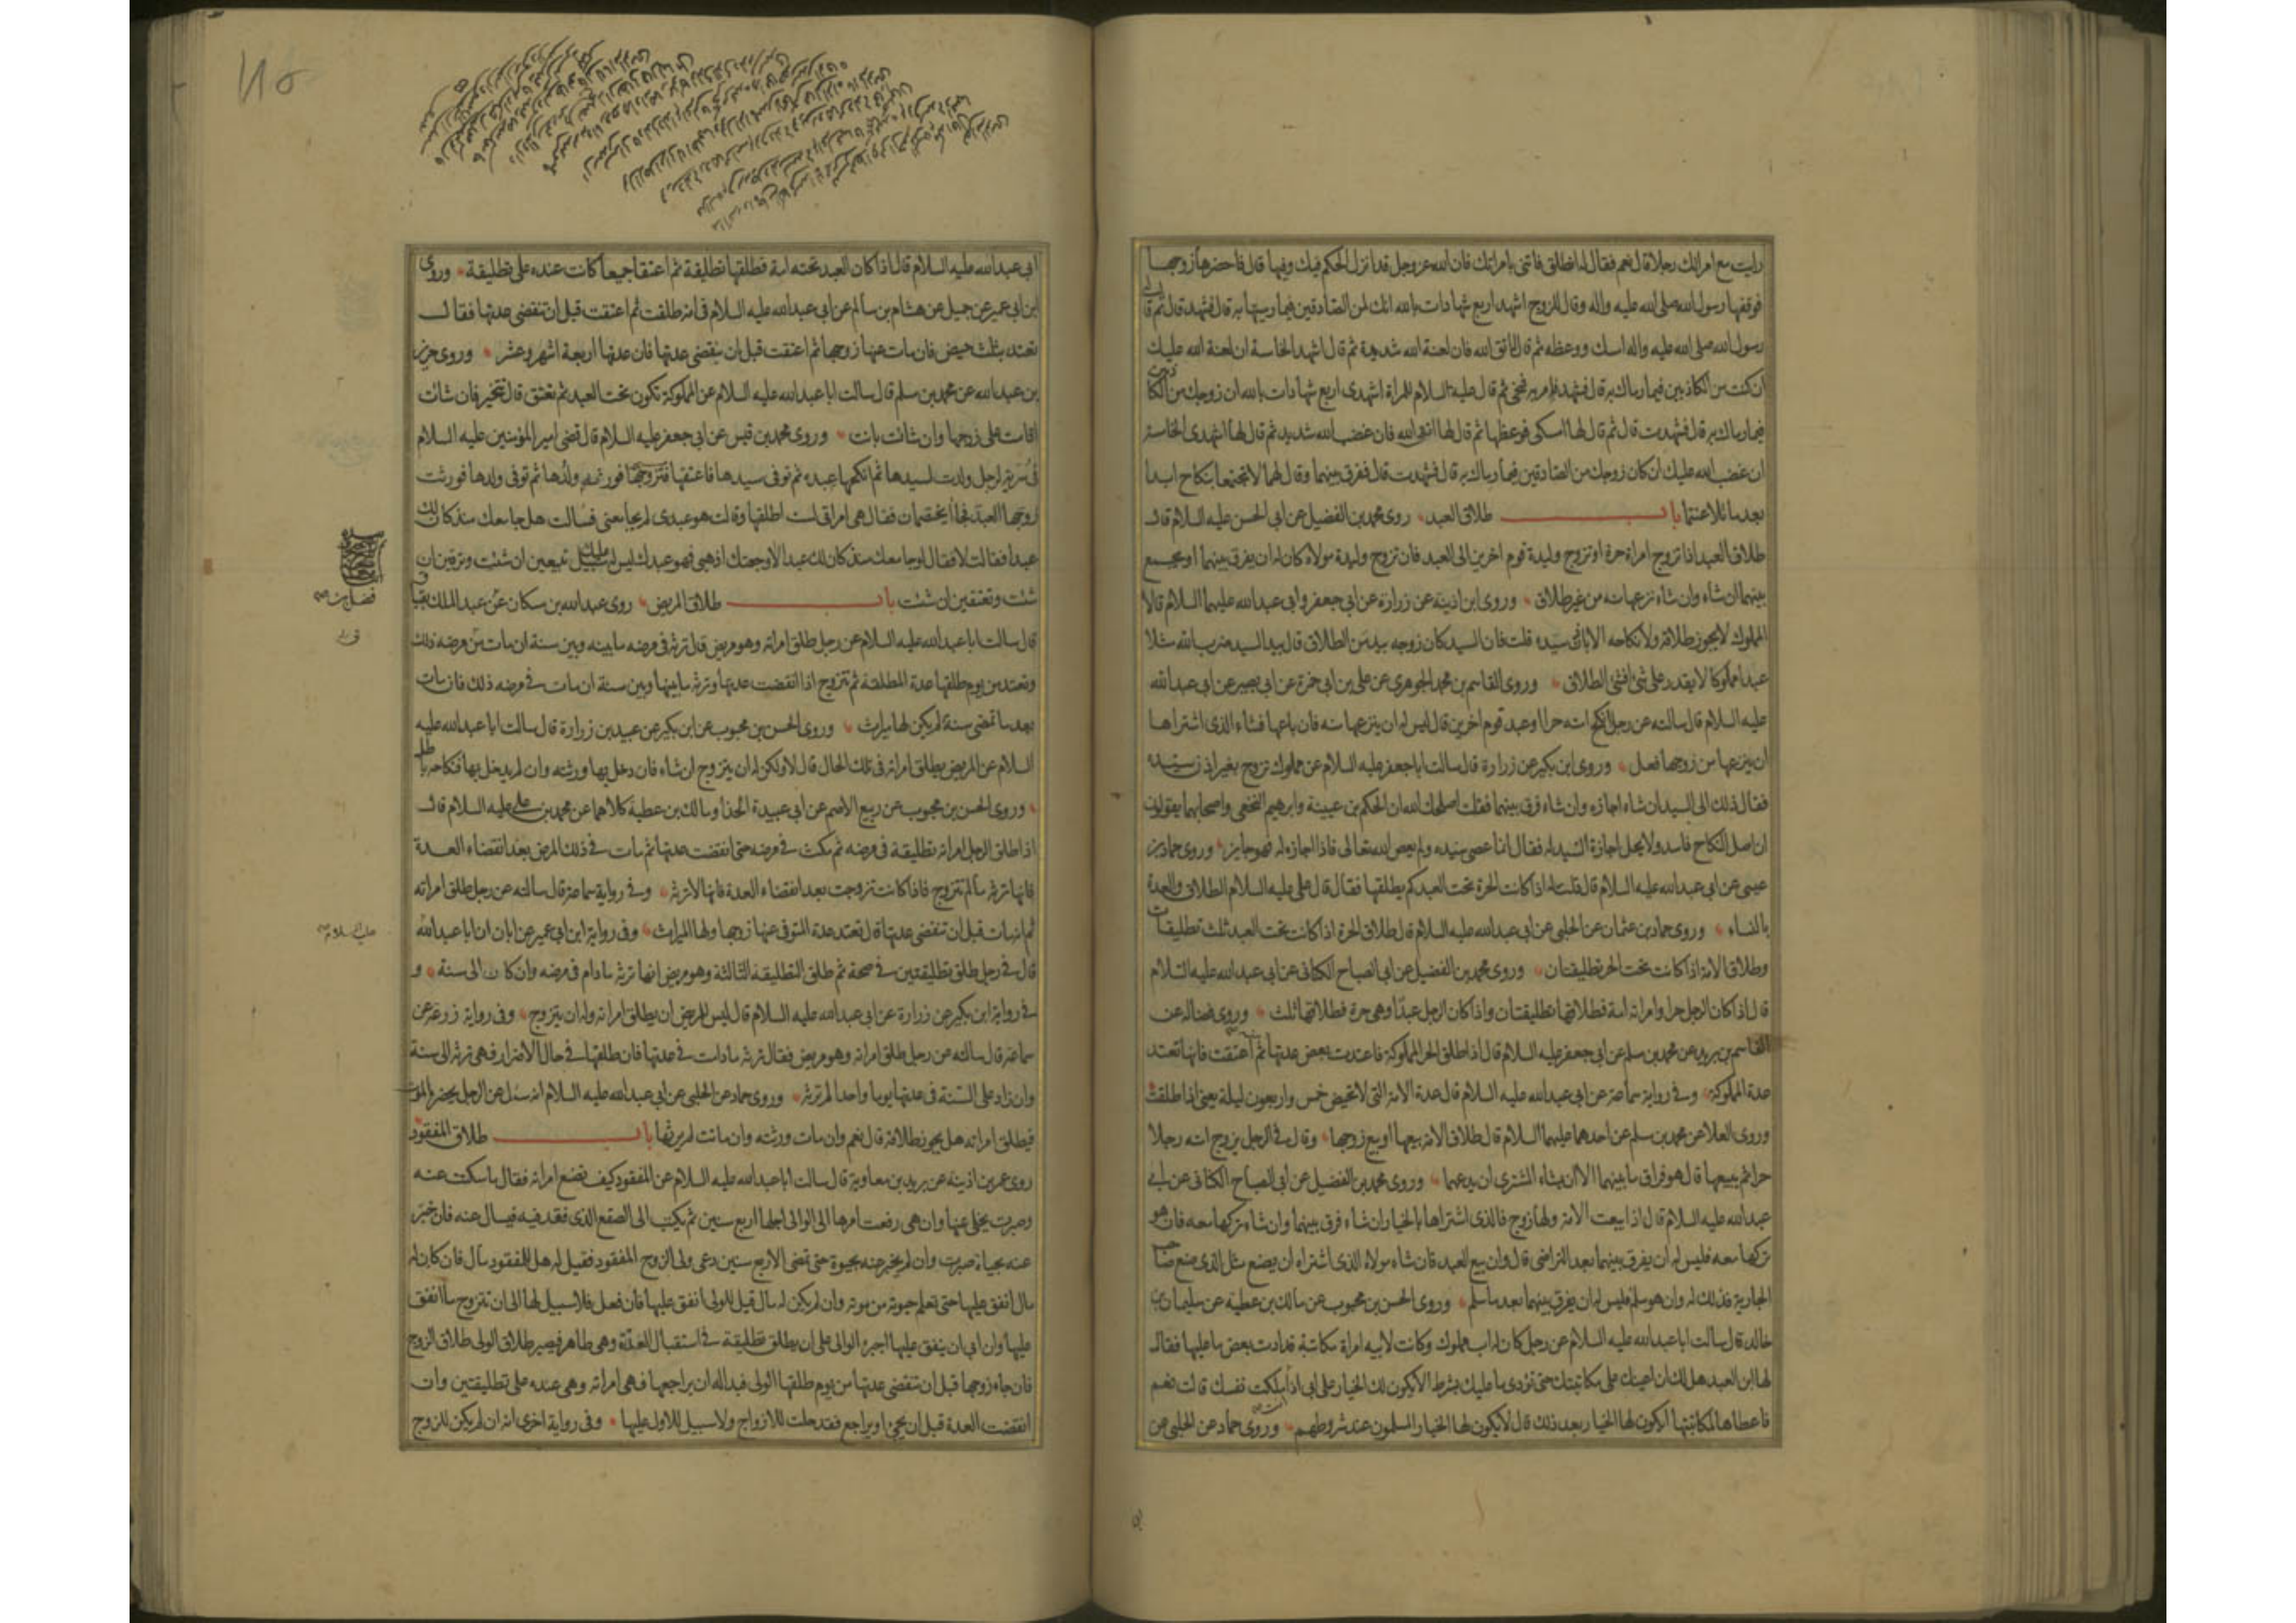 رايت مع امراتك رجلا قال نعم فقال له انطلق فاتنى بامراتك فان الله عز وجل قد انزل الحكم فيك وفيها قال فاحضرها زوجها
فوقفها رسول الله صلى الله عليه واله وقال للزوج اشهد اربع شهادات بالله انك لمن الصادقين فيما رميتها به قال فشهد قال ثم قال
رسول الله صلى الله عليه واله امسك ووعظه ثم قال اتق الله فان لعنة الله شديدة ثم قال اشهد الخامسة ان لعنة الله عليك
ان كنت من الكاذبين فيما رماك به قال فشهد فامر به فنحى ثم قال عليه السلام للمراة اشهدى اربع شهادات بالله ان زوجك من الكاذبين
فيما رماك به قال فشهدت قال ثم قال لها امسكى فوعظها ثم قال لها اتقى الله فان غضب الله شديد ثم قال لها اشهدى الخامسة
ان غضب الله عليك ان كان زوجك من الصادقين فيما رماك به قال فشهدت قال ففرق بينهما وقال لهما لا تجتمعا بنكاح ابدا
بعد ما تلاعنتما باب طلاق العبد روى محمد بن الفضيل عن ابى الحسن عليه السلام قال
طلاق العبد اذا تزوج امراة حرة او تزوج وليدة قوم اخرين الى العبد فان تزوج وليدة مولاه كان له ان يفرق بينهما او يجمع
بينهما ان شاء وان شاء نزعها منه من غير طلاق وروى ابن اذينة عن زرارة عن ابى جعفر وابى عبد الله عليهما السلام قالا
المملوك لا يجوز طلاقه ولا نكاحه الا باذن سيده قلت فان السيد كان زوجه بيد من الطلاق قال بيد السيد ضرب الله مثلا
عبدا مملوكا لا يقدر على شئ افشئ الطلاق وروى القاسم بن محمد الجوهرى عن على بن ابى حمزة عن ابى بصير عن ابى عبد الله
عليه السلام قال سالته عن رجل انكح امته حرا او عبد قوم اخرين قال ليس له ان ينزعها منه فان باعها فشاء الذى اشتراها
ان ينزعها من زوجها فعل وروى ابن بكير عن زرارة قال سالت ابا جعفر عليه السلام عن مملوك تزوج بغير اذن سيده
فقال ذلك الى السيد ان شاء اجازه وان شاء فرق بينهما فقلت اصلحك الله ان الحكم بن عيينة وابرهيم النخعى واصحابهما يقولون
ان اصل النكاح فاسد ولا يحل اجازة السيد له فقال انما عصى سيده ولم يعص الله تعالى فاذا اجازه له فهو جايز وروى حماد بن
عيسى عن ابى عبد الله عليه السلام قال قلت له اذا كانت الحرة تحت العبد كم يطلقها فقال قال على عليه السلام الطلاق والعدة
بالنساء وروى حماد بن عثمان عن الحلبى عن ابى عبد الله عليه السلام قال طلاق الحرة اذا كانت تحت العبد ثلث تطليقات
وطلاق الامة اذا كانت تحت الحر تطليقتان وروى محمد بن الفضيل عن ابى الصباح الكنانى عن ابى عبد الله عليه السلام
قال اذا كان الرجل حرا وامراته امة فطلاقها تطليقتان واذا كان الرجل عبدا وهى حرة فطلاقها ثلث وروى فضالة عن
القاسم بن بريد عن محمد بن مسلم عن ابى جعفر عليه السلام قال اذا طلق الحر المملوكة فاعتدت بعض عدتها ثم اعتقت فانها تعتد
عدة المملوكة وفى رواية سماعة عن ابى عبد الله عليه السلام قال عدة الامة التى لا تحيض خمس واربعون ليلة يعنى اذا طلقت
وروى العلا عن محمد بن مسلم عن احدهما عليهما السلام قال طلاق الامة بيعها او بيع زوجها وقال فى الرجل يزوج امته رجلا
حرا ثم يبيعها قال هو فراق ما بينهما الا ان يشاء المشترى ان يدعهما وروى محمد بن الفضيل عن ابى الصباح الكنانى عن ابى
عبد الله عليه السلام قال اذا بيعت الامة ولها زوج فالذى اشتراها بالخيار ان شاء فرق بينهما وان شاء تركها معه فان هو
تركها معه فليس له ان يفرق بينهما بعد التراضى قال وان بيع العبد فان شاء مولاه الذى اشتراه ان يصنع مثل الذى صنع صاحب
الجارية فذلك له وان هو سلم فليس له ان يفرق بينهما بعد ما سلم وروى الحسن بن محبوب عن مالك بن عطية عن سليمان بن
خالد قال سالت ابا عبد الله عليه السلام عن رجل كان له اب مملوك وكانت لابيه امراة مكاتبة قد ادت بعض ما عليها فقال
لها ابن العبد هل لك ان اعينك على مكاتبتك حتى تؤدى ما عليك بشرط الا يكون لك الخيار على ابى اذا ملكت نفسك قالت نعم
فاعطاها لمكاتبتها ايكون لها الخيار بعد ذلك قال لا يكون لها الخيار المسلمون عند شروطهم وروى حماد عن الحلبى عن
ابى عبد الله عليه السلام قال اذا كان العبد تحته امة فطلقها تطليقة ثم اعتقا جميعا كانت عنده على تطليقة وروى
ابن ابى عمير عن جميل عن هشام بن سالم عن ابى عبد الله عليه السلام فى امة طلقت ثم اعتقت قبل ان تنقضى عدتها فقال
تعتد بثلث حيض فان مات عنها زوجها ثم اعتقت قبل ان تنقضى عدتها فان عدتها اربعة اشهر وعشر وروى حريز
بن عبد الله عن محمد بن مسلم قال سالت ابا عبد الله عليه السلام عن المملوكة تكون تحت العبد ثم تعتق قال تتخير فان شائت
اقامت على زوجها وان شائت بانت وروى محمد بن قيس عن ابى جعفر عليه السلام قال قضى امير المؤمنين عليه السلام
فى سرية لرجل ولدت لسيدها ثم انكحها عبده ثم توفى سيدها فاعتقها فتزوجها فورثه ولدها ثم توفى ولدها فورثت
زوجها العبد فجاآ يختصمان فقال هى امراتى لست اطلقها وقالت هو عبدى لم يجامعنى فسالت هل جامعك منذ كان لك
عبدا فقالت لا فقال لو جامعك منذ كان لك عبدا لاوجعتك اذهبى فهو عبدك ليس له عليك سبيل تبيعين ان شئت وترقين ان
شئت وتعتقين ان شئت باب طلاق المريض روى عبد الله بن مسكان عن عبد الملك بقباق
فضل بن
قال سالت ابا عبد الله عليه السلام عن رجل طلق امراته وهو مريض قال ترثه فى مرضه ما بينه وبين سنة ان مات من مرضه ذلك
وتعتد من يوم طلقها عدة المطلقة ثم تتزوج اذا انقضت عدتها وترثه ما بينها وبين سنة ان مات فى مرضه ذلك فان مات
بعد ما تمضى سنة لم يكن لها ميراث وروى الحسن بن محبوب عن ابن بكير عن عبيد بن زرارة قال سالت ابا عبد الله عليه
السلام عن المريض يطلق امراته فى تلك الحال قال لا ولكن له ان يتزوج ان شاء فان دخل بها ورثته وان لم يدخل بها فنكاحه باطل
وروى الحسن بن محبوب عن ربيع الاصم عن ابى عبيدة الحذا ومالك بن عطية كلاهما عن محمد بن على عليه السلام قال
اذا طلق الرجل امراته تطليقة فى مرضه ثم مكث فى مرضه حتى انقضت عدتها ثم مات فى ذلك المرض بعد انقضاء العدة
فانها ترثه ما لم تتزوج فاذا كانت تزوجت بعد انقضاء العدة فانها لا ترثه وفى رواية سماعة قال سالته عن رجل طلق امراته
ثم انه مات قبل ان تنقضى عدتها قال تعتد عدة المتوفى عنها زوجها ولها الميراث وفى رواية ابن ابى عمير عن ابان ان ابا عبد الله
عليه السلام
قال فى رجل طلق تطليقتين فى صحة ثم طلق التطليقة الثالثة وهو مريض انها ترثه ما دام فى مرضه وان كان الى سنة و
فى رواية ابن بكير عن زرارة عن ابى عبد الله عليه السلام قال ليس للمريض ان يطلق امراته وله ان يتزوج وفى رواية زرعة عن
سماعة قال سالته عن رجل طلق امراته وهو مريض فقال ترثه ما دامت فى عدتها فان طلقها فى حال الاضرار فهى ترثه الى سنة
وان زاد على السنة فى عدتها يوما واحدا لم ترثه وروى حماد عن الحلبى عن ابى عبد الله عليه السلام انه سئل عن الرجل يحضره الموت
فيطلق امراته هل يجوز طلاقه قال نعم وان مات ورثته وان ماتت لم يرثها باب طلاق المفقود
روى عمر بن اذينة عن بريد بن معاوية قال سالت ابا عبد الله عليه السلام عن المفقود كيف تصنع امراته فقال ما سكتت عنه
وصبرت يخلى عنها وان هى رفعت امرها الى الوالى اجلها اربع سنين ثم يكتب الى الصقع الذى فقد فيه فيسال عنه فان خبر
عنه بحياة صبرت وان لم يخبر عنه بحيوة حتى تمضى الاربع سنين دعى ولى الزوج المفقود فقيل له هل للمفقود مال فان كان له
مال انفق عليها حتى تعلم حيوته من موته وان لم يكن له مال قيل للولى انفق عليها فان فعل فلا سبيل لها الى ان تتزوج ما انفق
عليها وان ابى ان ينفق عليها اجبره الوالى على ان يطلق تطليقة فى استقبال العدة وهى طاهر فيصير طلاق الولى طلاق الزوج
فان جاء زوجها قبل ان تنقضى عدتها من يوم طلقها الولى فبدا له ان يراجعها فهى امراته وهى عنده على تطليقتين وان
انقضت العدة قبل ان يجئ او يراجع فقد حلت للازواج ولا سبيل للاول عليها وفى رواية اخرى انه ان لم يكن للزوج